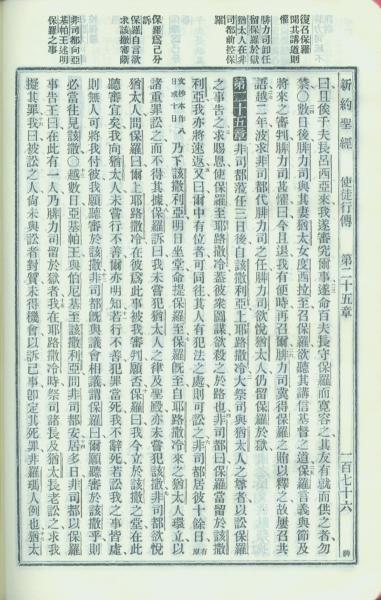 新約聖經 使徒行傳 第二十五章 一百七十六
復召保羅
聞其講道則
懼
腓力司卸任
留保羅於獄
猶太人在非
司都前控保
羅
保羅爲己分
訴
保羅自言欲
求該撒審斷
非司都向亞
基帕王述明
保羅之事
曰且俟千夫長呂西亞來我遂審究爾事遂命百夫長守保羅而寬容之其友有就而供之者勿
禁○數日後腓力司與其妻猶太女度西拉至召保羅欲聽其講信基督之道保羅言義與節及
將來之審判腓力司甚懼曰今且退我有便時再召爾腓力司冀得保羅之賄以釋之故屢召共
語越二年波求非司都代腓力司之任腓力司欲悅猶太人仍留保羅於獄
第二十五章 非司都蒞任三日後自該撒利亞上耶路撒冷大祭司與猶太人之尊者以訟保羅
之事告之求賜恩使保羅至耶路撒冷蓋彼衆圖謀欲殺之於路也非司都曰保羅當留於該撒
利亞我亦將速返又曰爾中有位者可同往其人有犯法之處則可訟之非司都居彼十餘日原有
文抄本作八日或十日乃下該撒利亞明日坐堂命提保羅至保羅旣至自耶路撒冷來之猶太人環立以
諸重罪訟之而不得其據保羅訴曰我未嘗犯猶太人之律及聖殿亦未嘗犯該撒非司都欲悅
猶太人問保羅曰爾上耶路撒冷在彼爲此事被我審判願否保羅曰我今立於該撒之堂在此
聽審宜矣我向猶太人未嘗行不善爾亦明知若行不善犯罪當死我不辭死若訟我之事皆虛
則無人可將我付彼我願聽審於該撒非司都旣與議會相議謂保羅曰爾願聽審於該撒乎則
必當往見該撒○越數日亞基帕王與伯尼基至該撒利亞問非司都安居多日非司都以保羅
事告王曰在此有一人乃腓力司留於獄者我在耶路撒冷時祭司諸長及猶太長老訟之求我
擬其罪我曰被訟之人尙未與訟者對質未得機會以訴己事卽定其死罪非羅瑪人例也猶太